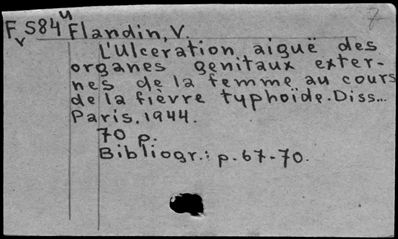 7
F S84 u Flandin, V.
v
L'Ulceration aiguë des
organes genitaux exter-
nes de la femme au cours
de la fièvre typhoïde. Diss...
Paris, 1944.
70 p.
Bibliogr.: p. 67-70.